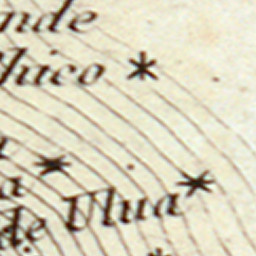 nde
hico *
a *
de Ulua *